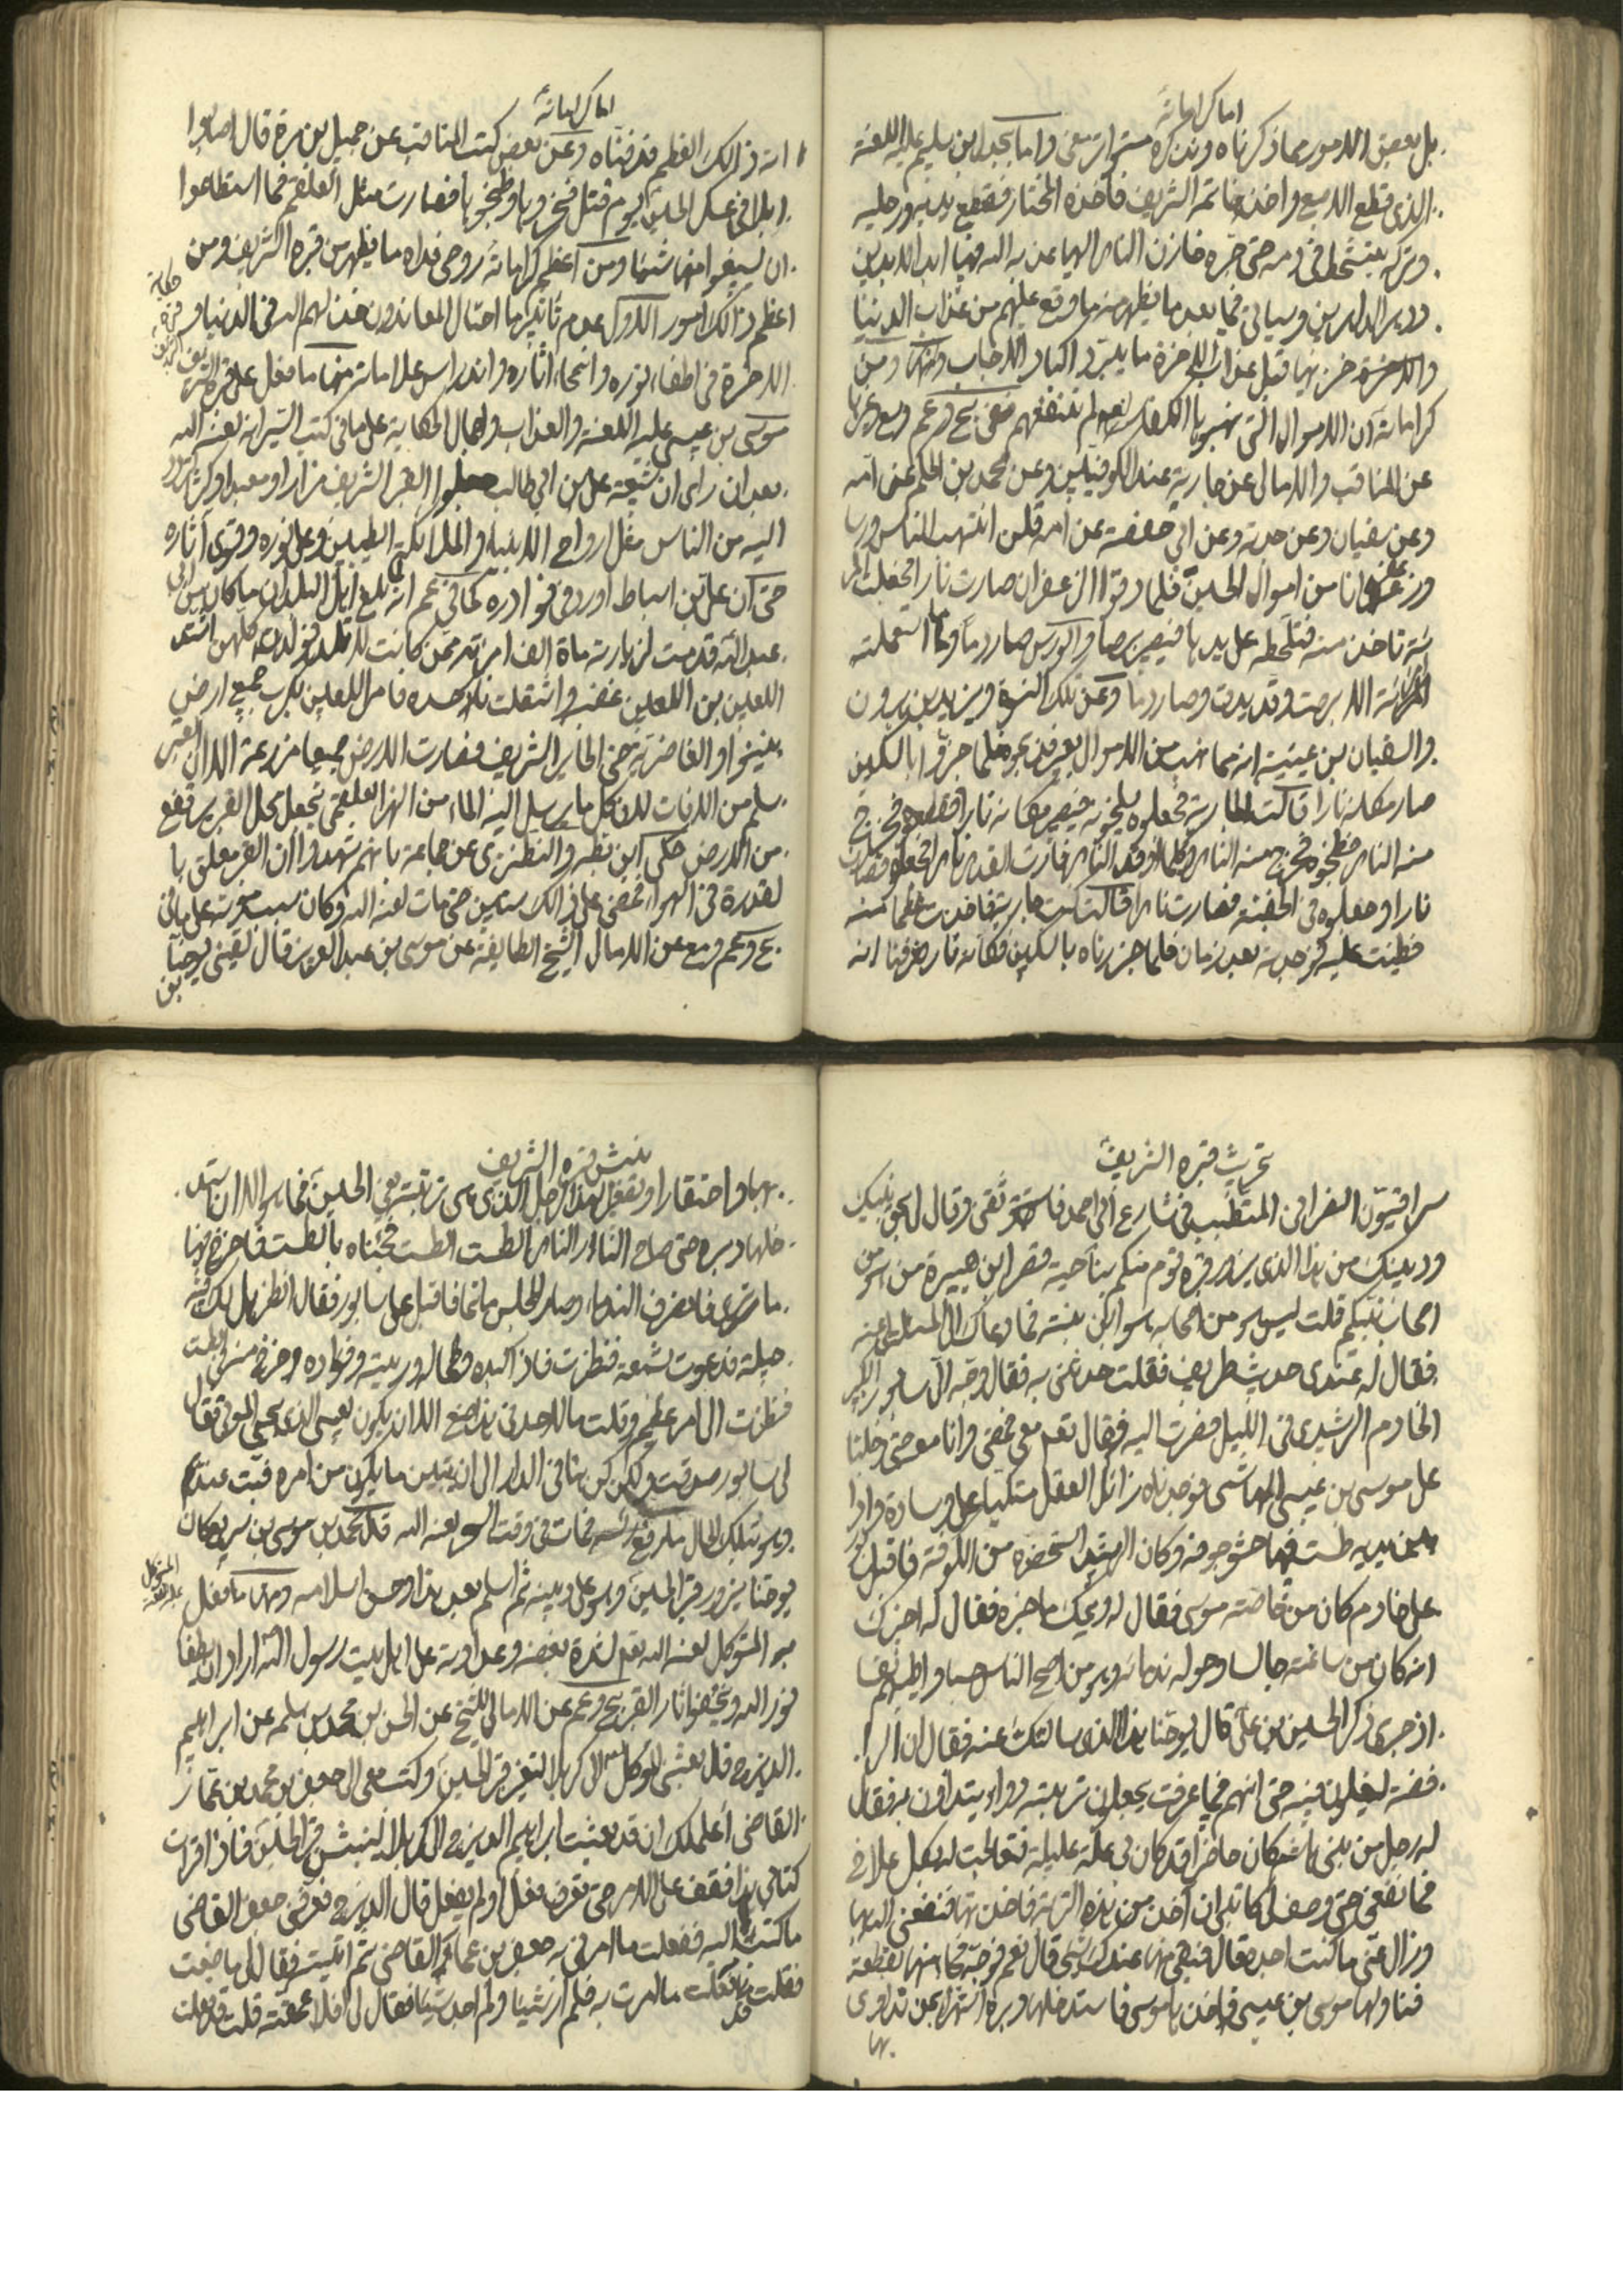 اما كراماته
بل بعض الامور مما ذكرناه ونذكره متواتر معنى واما بجدل بن سليم عليه اللعنة
الذي قطع الاصبع واخذ خاتمه الشريف فاخذه المختار فقطع يديه ورجليه
وتركه يتشحط في دمه حتى
ودهر الداهرين وسياتي فيما بعد ما يظهر منه ما وقع عليهم من عذاب الدنيا
والاخرة خزيها قبل عذاب الاخرة ما يبرد اكباد الاحباب ومنها ومن
كراماته ان الاموال التي نهبوها لم تنفعهم
عن المناقب والامالي عن جارية عند الكوفيين وعن محمد بن الحكم عن امه
وعن سفيان وعن جدته وعن ابي حفصة عن امه قلن انتهب الناس ورسا
وزعفرانا من اموال الحسين فلما دقوا الزعفران صارت نارا فجعلت المراة
تاخذ منه فتلطخه على يديها فيصير برصا والورس صار دما وما استعملته
امراة الا برصت وقد يبست وصار دما وعن تلك النسوة ويزيد بن هرون
والسفيان بن عيينة انه مما نهب من الاموال بعير فنحروه فلما جزوها بالسكين
صار مكانه نارا قالت الجارية فجعلوه يسلخونه فيصير مكانه نارا فقطعوه فخرج
منه النار فطبخوه فخرج منه النار وكلما اوقدوا النار فارت القدر نارا فجعلوه فصارت
نارا وجعلوه في الجفنة فصارت نارا قالت كنت جارية فاخذت عظما منه
فطينت عليه فوجدته بعد زمان فلما جززناه بالسكين فكانه نار فعرفنا انه
اما كراماته
انه ذلك العظم فدفناه وعن بعض كتب المناقب عن جميل بن مرة قال اصابوا
ابلا في عسكر الحسين يوم قتل فنحروها وطبخوها فصارت مثل العلقم فما استطاعوا
ان يسيغوا منها شيئا ومن اعظم كراماته روحي فداه ما يظهر من قبره الشريف ومن
اعظم ذلك امور الاول عدم تاثير ما احتال المعاندون خذلهم الله في الدنيا و
الاخرة في اطفاء نوره وانمحاء اثاره واندراس علاماته منها ما فعل على قبره
موسى بن عيسى عليه اللعنة والعذاب واجمال الحكاية على ما في كتب السير انه لعنه الله
بعد ان راى ان شيعة علي بن ابي طالب جعلوا القبر الشريف مزارا ومعبدا وكثر مرور
اليه من الناس مثل ارواح الانبياء والملائكة الطيبين وعلى نوره وقوى آثاره
حتى ان علي بن اسباط اورد في نوادره كما في انه بلغ اهل البلدان ما كان من ابي
عبد الله قدمت لزيارته ماة الف امراة ممن كانت لا تلد فولدن كلهن اشتد
اللعين بن اللعين غضبه واشتعلت نار حسده فامر اللعين بكرب جميع ارض
نينوا والغاضرية حتى الحاير الشريف فصارت الارض جميعا مزرعة الا ان القبر
سلم من الافات
من الارض حكى ابن بطه والنطنزي عن جماعة بانهم شهدوا ان القبر معلق با
لقدرة في الهواء فمضى على ذلك سنين حتى مات لعنه الله وكان سبب موته على ما في
عن الامالي الشيخ الطايفة عن موسى بن عبد العزيز قال لقيني يوحنا
بن
تخريب قبره الشريف
سرافيون النصراني المتطبب في شارع ابي احمد فاستوقفني وقال لي بحق نبيك
ودينك من هذا الذي يزور قبره قوم منكم بناحية قصر ابن هبيرة من هو من
اصحاب نبيكم قلت ليس هو من اصحابه هو ابن بنته فما دعاك الى المسئلة عنه
فقال له عندي حديث طريف فقلت حدثني به فقال وجه الي سابور الكبير
الخادم الرشيدي في الليل فصرت اليه فقال تعم معي فمضى وانا معه حتى دخلنا
على موسى بن عيسى الهاشمي فوجدناه زائل العقل متكيا على وسادة واذا
بين يديه طست فيها حشو جوفه وكان الرشيد استحضره من الكوفة فاقبل سابور
على خادم كان من خاصة موسى فقال له ويحك ما خبره فقال له اخبرك
انه كان من ساعته جالسا وحوله ندماؤه وهو من اصح الناس جسما واطيبهم نفسا
اذ جرى ذكر الحسين بن علي قال يوحنا هذا الذي سالتك عنه فقال ان الرا
فضه ليغلون فيه حتى انهم فيما عرفت يجعلون تربته دواء يتداوون به فقال
له رجل من بني هاشم كان حاضرا قد كان بي علة عليلة فتعالجت لها بكل علاج
فما نفعني حتى وصف لي كاتبي ان آخذ من هذه التربة فاخذتها فنفعني الله بها
وزال عني ما كنت اجده قال فبقي منها عندك شيء قال نعم فوجه فجاء منها بقطعة
فناولها موسى بن عيسى فاخذها موسى فاستدخلها دبره استهزاء بمن تداوى
بها
نبش قبره الشريف
بها واحتقارا وتصغيرا لهذا الرجل الذي هي تربته يعني الحسين فما هو الا ان استد
خلها دبره حتى صاح النار النار الطست الطست فجئناه بالطست فاخرج فيها
ما ترى فانصرف الندماء وصار المجلس ماتما فاقبل علي سابور فقال انظر هل لك فيه
حيلة فدعوت بشمعة فنظرت فاذا كبده وطحاله وريته وفؤاده خرج منه في الطست
فنظرت الى امر عظيم وقلت ما لاحد في هذا صنع الا ان يكون لعيسى الذي يحيي الموتى فقال
لي سابور صدقت ولكن كن هنا في الدار الى ان يتبين ما يكون من امره فبت عندهم
وهو بتلك الحال ما رفع راسه فمات في وقت السحر لعنه الله قال محمد بن موسى بن سريع كان
يوحنا يزور قبر الحسين وهو على دينه ثم اسلم بعد هذا وحسن اسلامه ومنها ما فعل
هو المتوكل لعنه الله بعد لشدة بغضه وعداوته على اهل بيت رسول الله اراد ان يطفا
نور الله ويخفي اثار القبر عن الامالي للشيخ عن الحسن بن محمد بن سلمه عن ابراهيم
الديزج قال بعثني المتوكل الى كربلا لتغيير قبر الحسين وكتب معي الى جعفر بن محمد بن عمار
القاضي اعلمك ان قد بعثت ابراهيم الديزج الى كربلا لينبش قبر الحسين فاذا قرات
كتابي هذا فقف على الامر حتى تعرف فعل او لم يفعل قال الديزج فعرفني جعفر القاضي
ما كتب اليه ففعلت ما امرني به جعفر بن عمار القاضي ثم اتيته فقال لي ما صنعت
فقلت قد فعلت ما امرت به فلم ار شيئا ولم اجد شيئا فقال لي افلا عمقته قلت قد فعلت